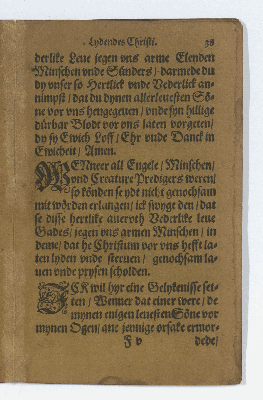 Lydendes Christi. 38
derlike Leue jegen vns arme Elenden
Minschen vnde Sünders / darmede du
dy vnser so Hertlick vnde Vederlick an-
nimpst / dat du dynen allerleuesten Sö-
ne vor vns hengegeuen / vnde syn hillige
dürbar Blodt vor vns laten vorgeten /
dy sy Ewich Loff / Ehr vnde Danck in
Ewicheit / Amen.
WENneer all Engele / Minschen /
vnd Creature Predigers weren /
so könden se ydt nicht genochsam
mit wörden erlangen / ick swyge den / dat
se disse hertlike aueroth Vederlike leue
Gades / jegen vns armen Minschen / in
deme / dat he Christum vor vns hefft la-
ten lyden vnde steruen / genochsam la-
uen vnde prysen scholden.
ICK wil hyr eine Gelykenisse set-
ten / Wenner dat einer were / de
mynen enigen leuesten Söne vor
mynen Ogen / ane jennige orsake ermor-
F v dede /